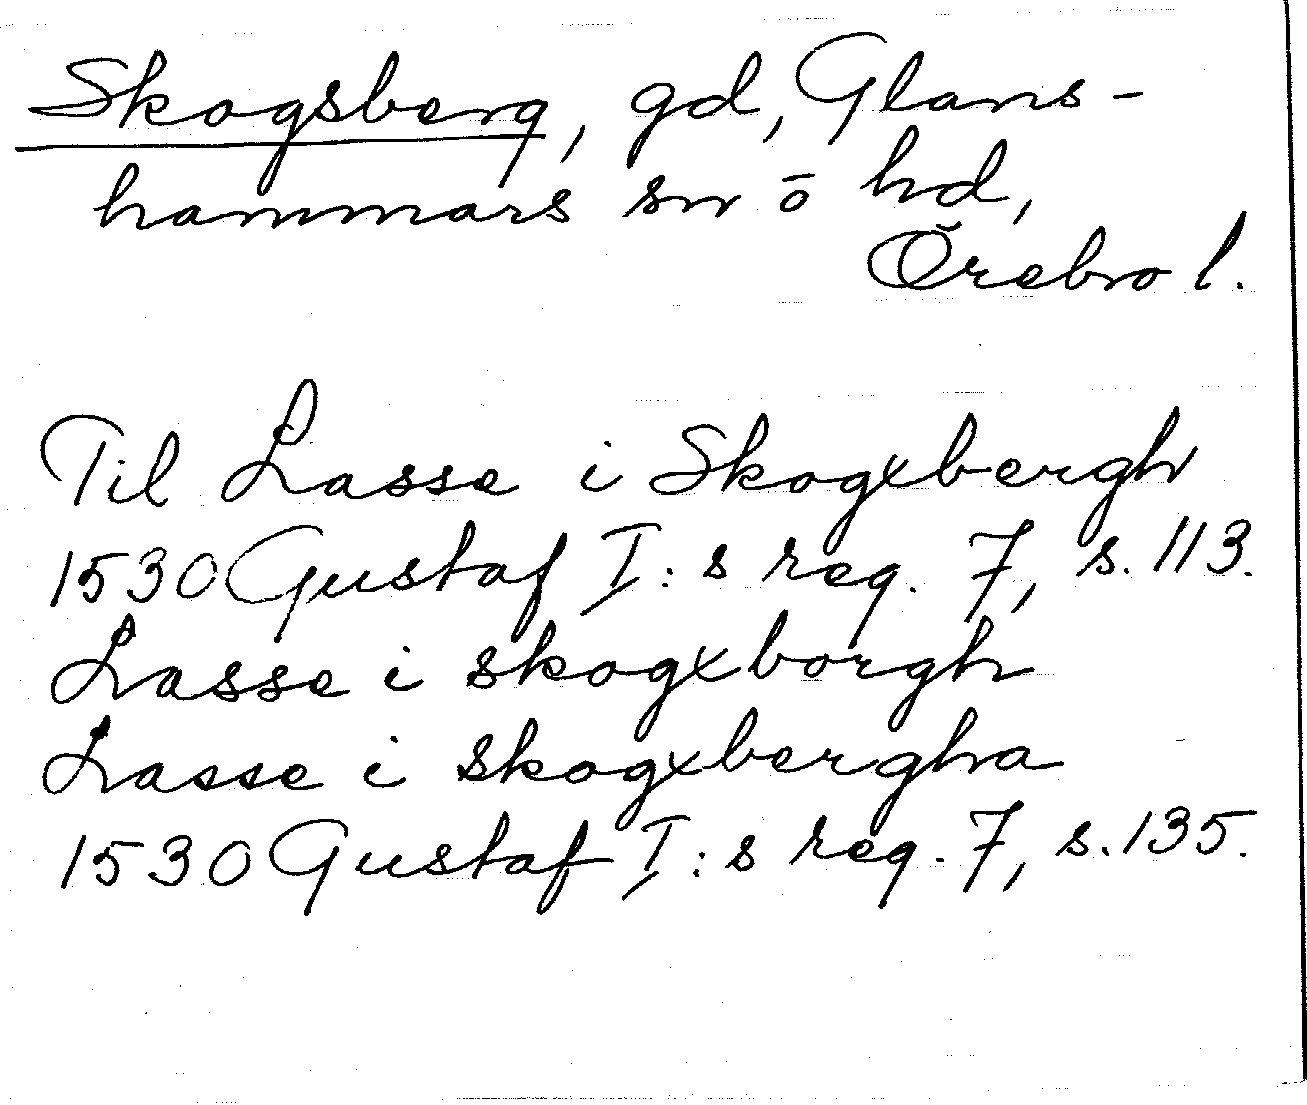 Skogsberg, gd, Glans-
hammars sn ō hd,
Örebro l.
Til Lasse i Skogxbergh
1530 Gustaf I:s reg. 7, s. 113.
Lasse i skogxborgh
Lasse i skogxbergha
1530 Gustaf I:s reg. 7, s. 135.